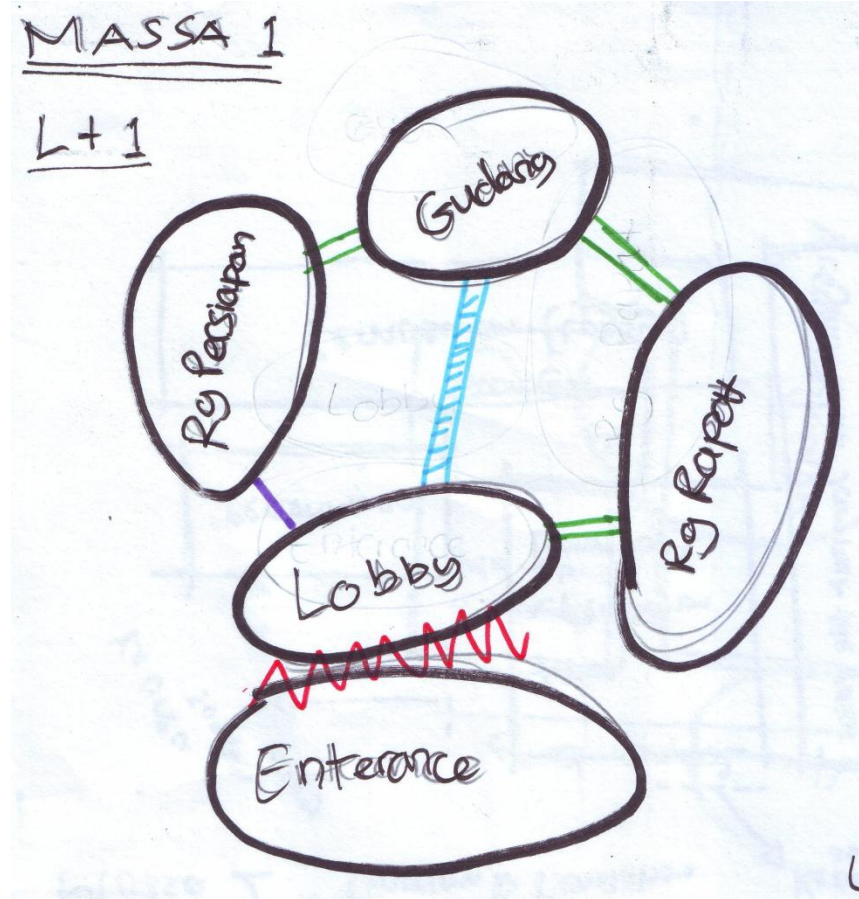 MASSA 1
L+1
Gudang
Rg Persiapan
Rg Rapat
Lobby
Enterance